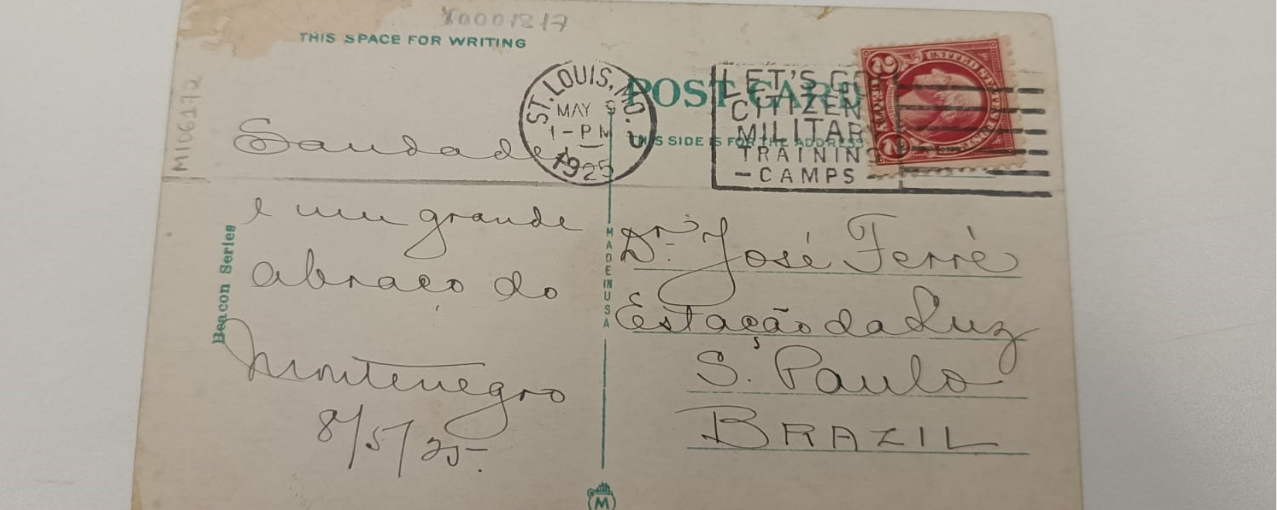 X0001817
THIS SPACE FOR WRITING
POST CARD
THIS SIDE IS FOR THE ADDRESS
ST. LOUIS, MO.
MAY 9
1-PM
1925
LET'S GO
CITIZENS
MILITARY
TRAINING
-CAMPS-
UNITED STATES
2
2
MIC6172
Saudades
e um grande
abraço do
Montenegro
8/5/25.
Beacon Series
MADE IN USA
Dr. José Ferré
Estação da Luz
S. Paulo
BRAZIL
M